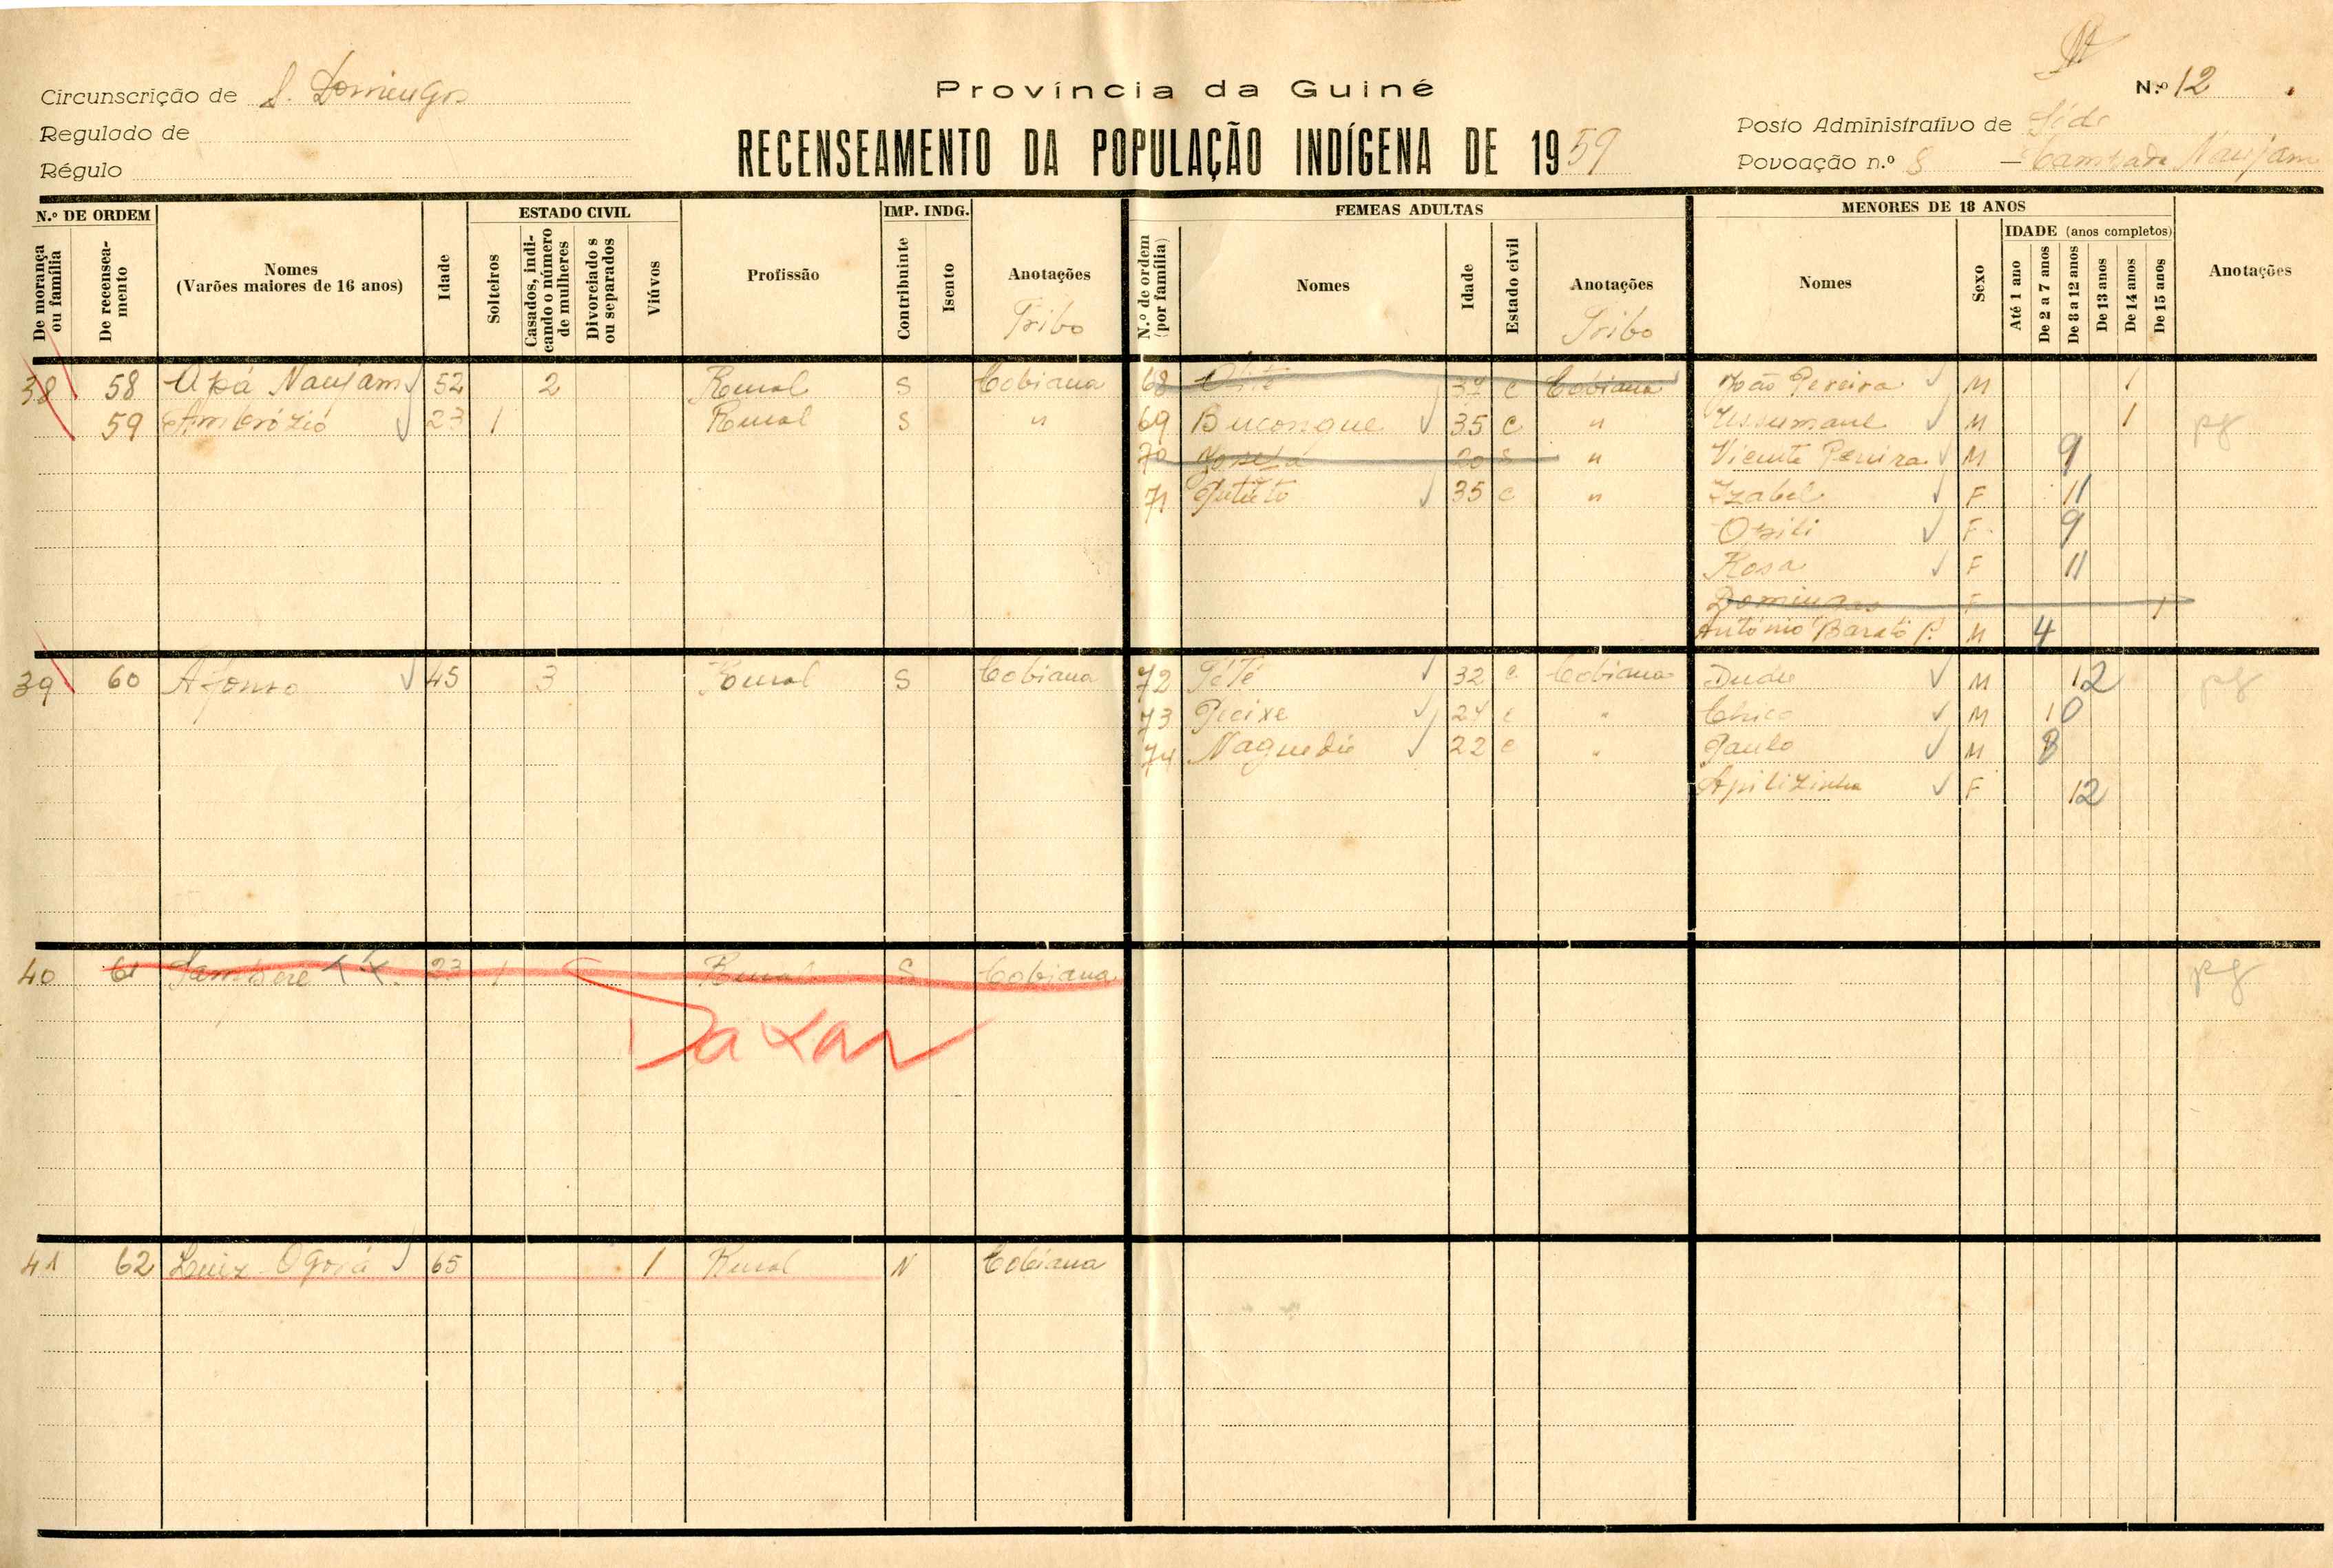 Província da Guiné
Circunscrição de S. Domingos
N.º 12
Regulado de
Régulo
RECENSEAMENTO DA POPULAÇÃO INDÍGENA DE 1959
Posto Administrativo de Sede
Povoação n.º 8 — Cambada Naujam
N.º DE ORDEM
De morança ou família
De recenseamento
Nomes
(Varões maiores de 16 anos)
Idade
ESTADO CIVIL
Solteiros
Casados, indicando o número de mulheres
Divorciados ou separados
Viúvos
Profissão
IMP. INDG.
Contribuinte
Isento
Anotações
Tribo
FEMEAS ADULTAS
N.º de ordem (por família)
Nomes
Idade
Estado civil
Anotações
Tribo
MENORES DE 18 ANOS
Nomes
Sexo
IDADE (anos completos)
Até 1 ano
De 2 a 7 anos
De 8 a 12 anos
De 13 anos
De 14 anos
De 15 anos
Anotações
38 58 Naujam 52 2 Rural S Cobiana 68 37 c Cobiana João Pereira M 1
59 Ambrózio 23 1 Rural S " 69 Bucongue 35 c " Ussumane M 1 pg
70 Josefa 20 S " Vicente Pereira M 9
71 35 c " Izabel F 11
F 9
Rosa F 11
Domingas F 1
António Barató P. M 4
39 60 Afonso 45 3 Rural S Cobiana 72 Têté 32 c Cobiana Dudu M 12 pg
73 Peixe 24 c " Chico M 10
74 Naguedie 22 c " Paulo M 8
Apilizinha F 12
40 61 23 1 Rural S Cobiana pg
Dakar
41 62 Luiz Ogoiá 65 1 Rural N Cobiana